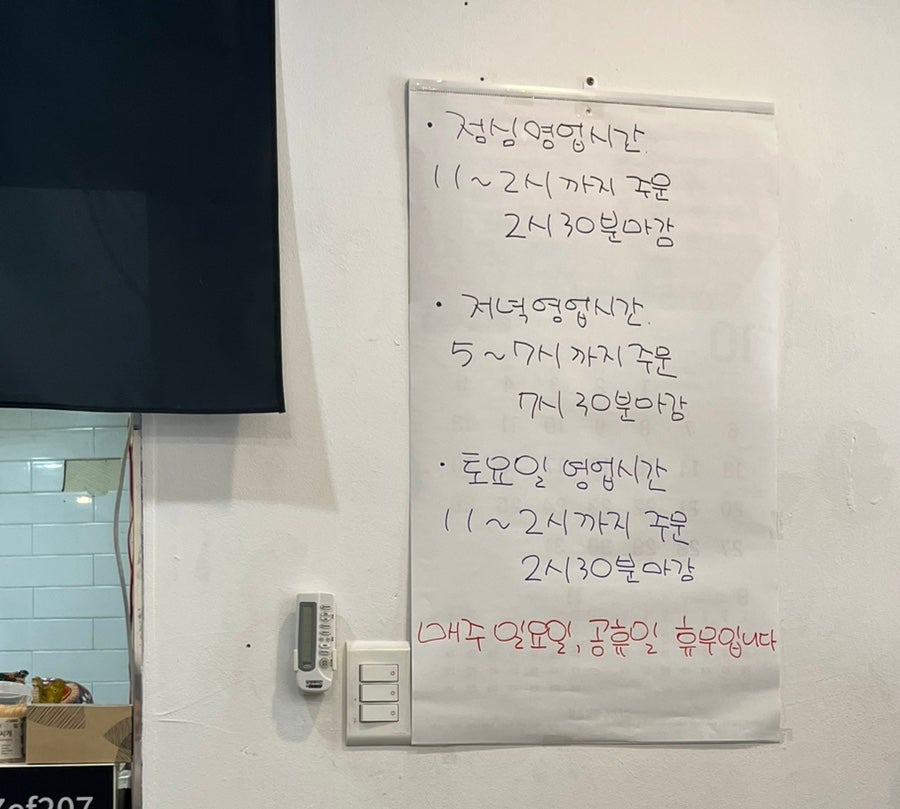 · 점심영업시간.
11~2시까지 주문
2시30분마감
· 저녁영업시간.
5~7시까지 주문
7시 30분마감
· 토요일 영업시간
11~2시까지 주문
2시30분마감
매주 일요일, 공휴일 휴무입니다